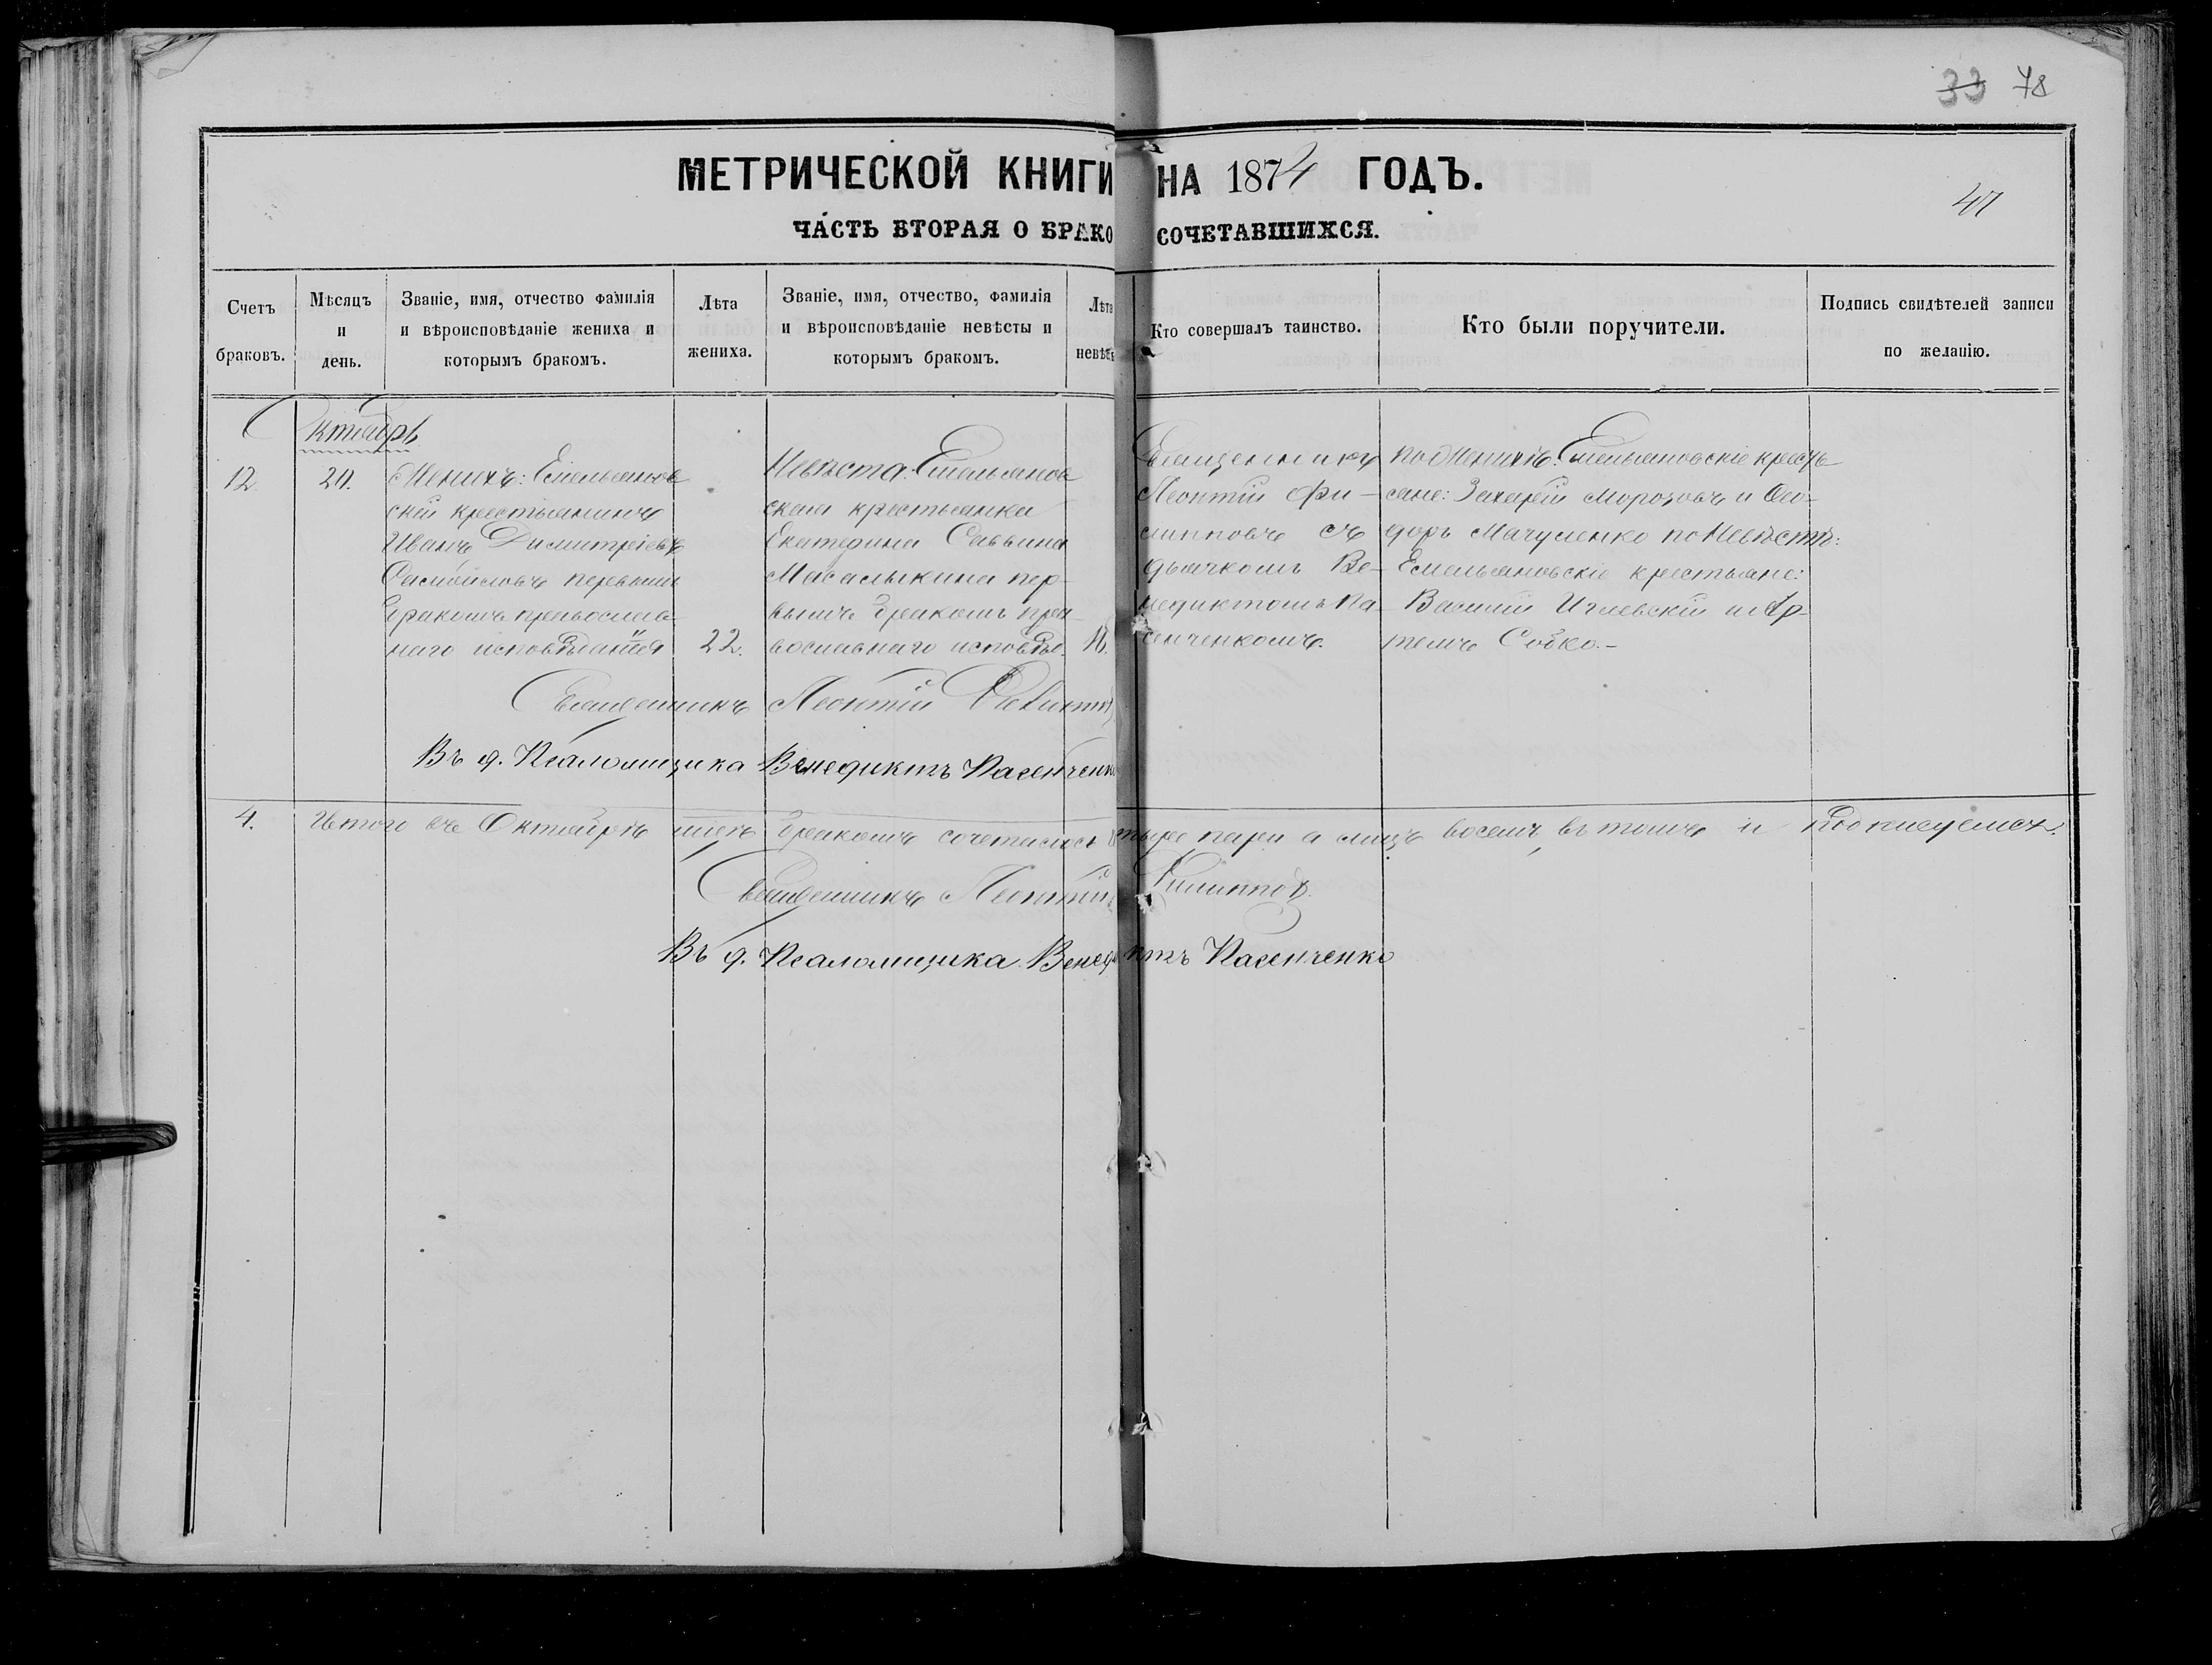 33 78
МЕТРИЧЕСКОЙ КНИГИ НА 1874 ГОДЪ.
47
ЧАСТЬ ВТОРАЯ О БРАКОСОЧЕТАВШИХСЯ.
Счетъ браковъ.
Мѣсяцъ и день.
Званіе, имя, отчество фамилія и вѣроисповѣданіе жениха и которымъ бракомъ.
Лѣта жениха.
Званіе, имя, отчество, фамилія и вѣроисповѣданіе невѣсты и которымъ бракомъ.
Лѣта невѣс
Кто совершалъ таинство.
Кто были поручители.
Подпись свидѣтелей записи по желанію.
Октябрь
12
20.
Женихъ: Емельянов
скій крестьянинъ
Иванъ Димитріевъ
первымъ
бракомъ православ
наго исповѣданія
22.
Невѣста: Емельянов
ская крестьянка
Екатерина Саввина
Масалыкина пер-
вымъ бракомъ пра-
вославнаго исповѣд.
Священникъ
Леонтій Фи-
липповъ съ
дьячкомъ Ве-
недиктомъ Па-
сенченкомъ.
по Женихѣ: Емельяновскіе кресть
яне: Захарій Морозовъ и Ѳео-
доръ Мачуленко по Невѣстѣ:
Емельяновскіе крестьяне:
Василій и Ар-
темъ Собко.-
Священникъ Леонтій Филиппов
Въ д. Псаломщика Венедиктъ Пасенченко
4.
Итого въ Октябрѣ м-цѣ бракомъ сочеталось четыре пары а лицъ восемь, въ томъ и подписуемся.
Священникъ Леонтій Филиппов.
Въ д. Псаломщика Венедиктъ Пасенченко